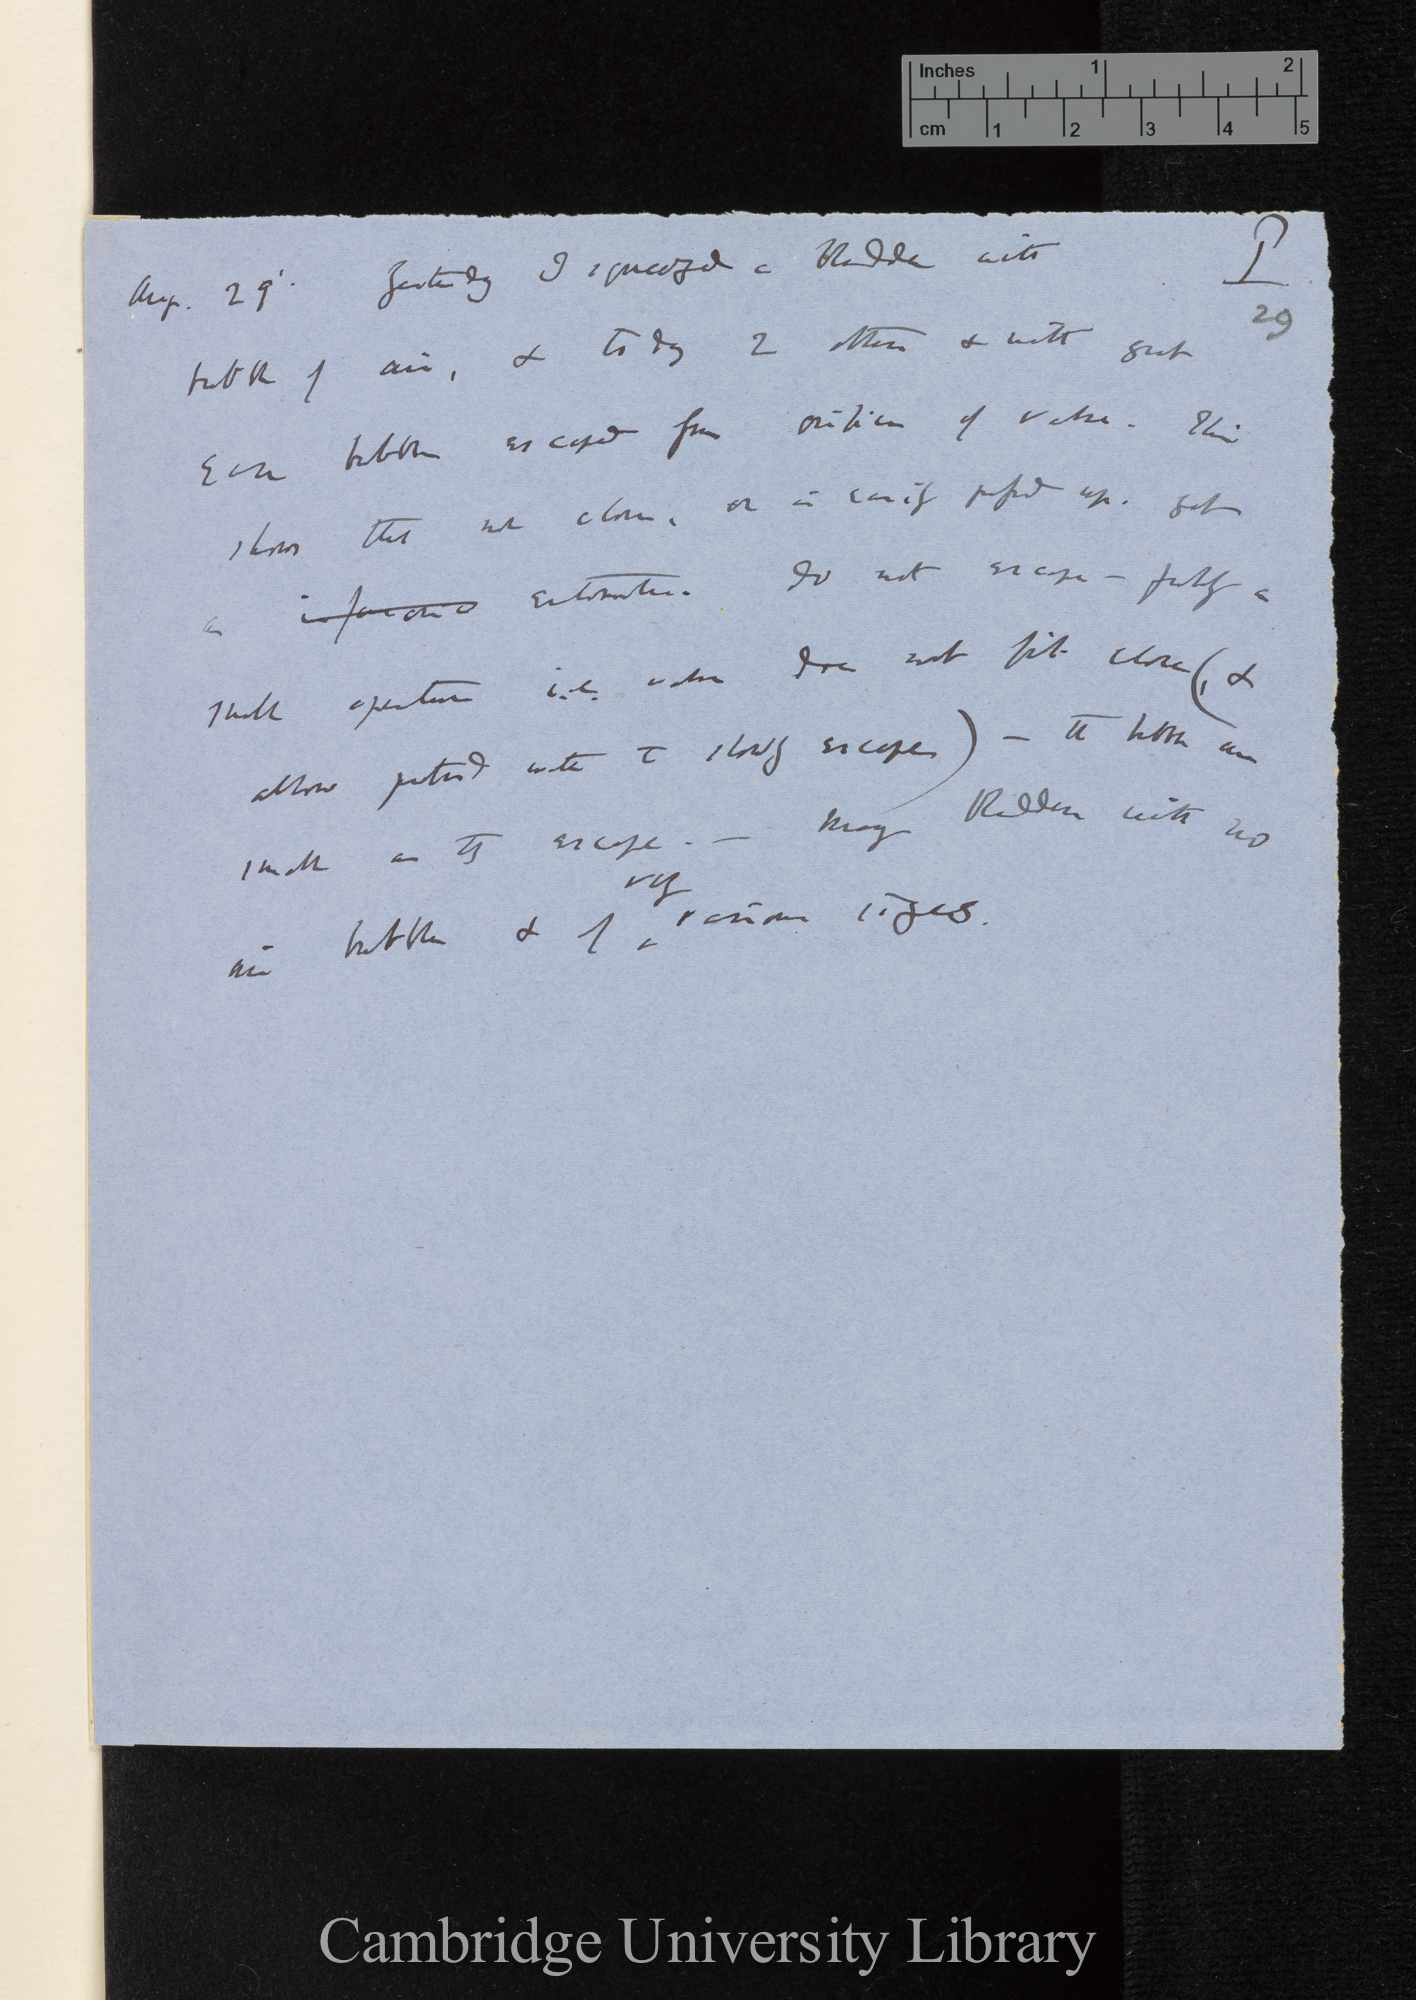 Inches 1 2
cm 1 2 3 4 5
Aug. 29'. Yesterday I squeezed a bladder with
29
bubble of air, & to day 2 others & with great
ease bubble escaped from position of valve. This
shows that not close, or is easily pushed up. yet
as infusoria entomostraca do not escape — probably a
small aperture i.e. valve does not fit close (, &
allows putrid water to slowly escape) — the bubbles are
small as they escape. — Many bladders with no
air bubbles & of very various sizes.
Cambridge University Library